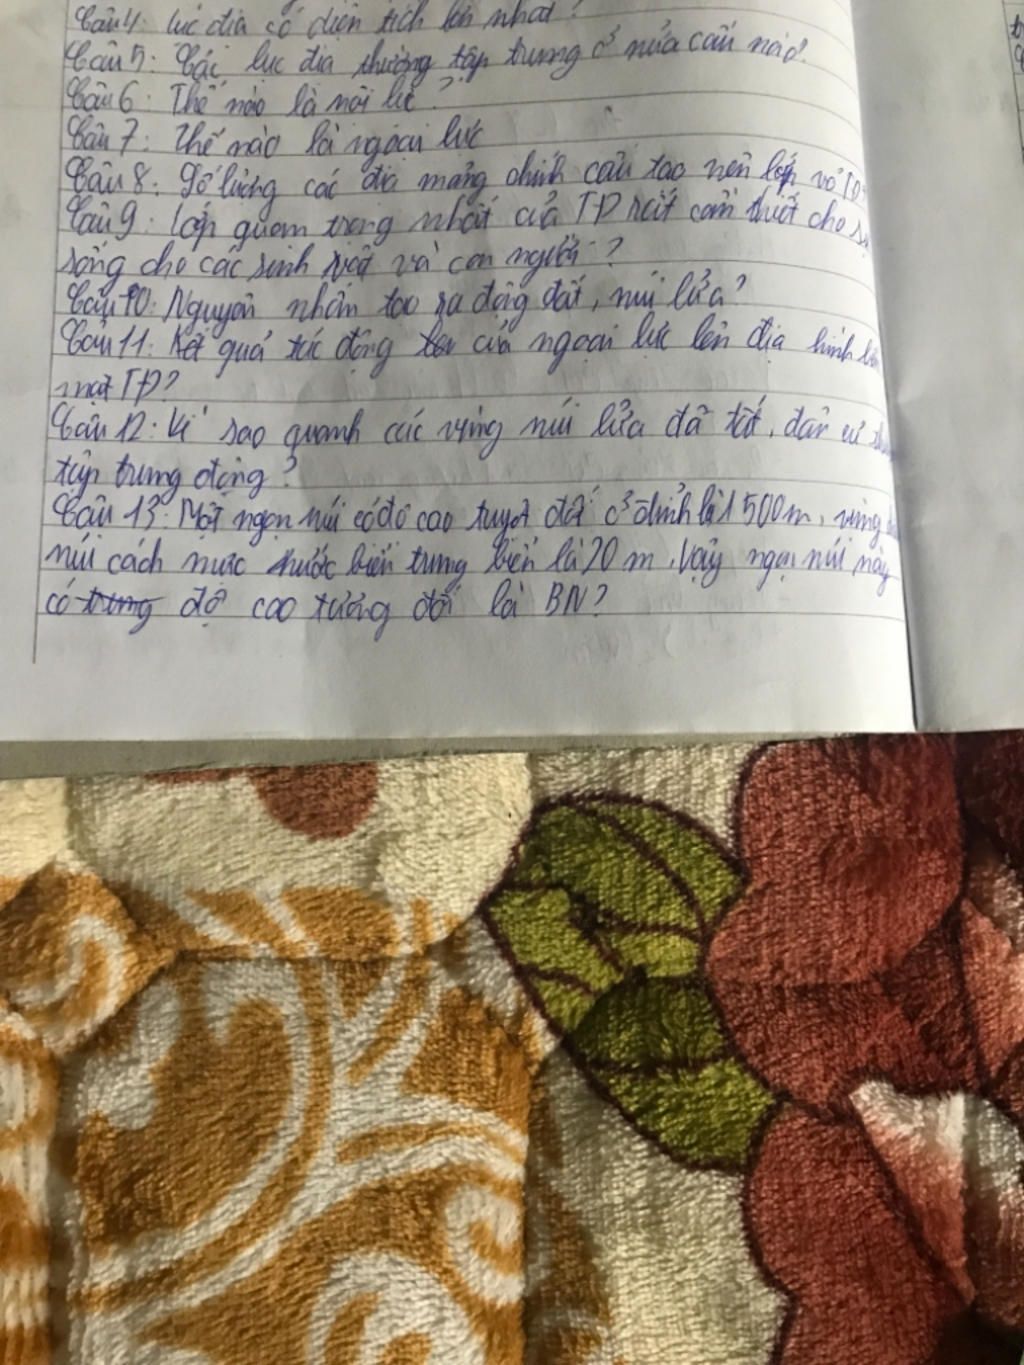 Câu 4: lục địa có diện tích lớn nhất?
Câu 5: Các lục địa thường tập trung ở nửa cầu nào?
Câu 6: Thế nào là nội lực?
Câu 7: Thế nào là ngoại lực
Câu 8: Số lượng các địa mảng chính cấu tạo nên lớp vỏ TĐ
Câu 9: lớp quan trọng nhất của TĐ rất cần thiết cho sự
sống cho các sinh vật và con người?
Câu 10: Nguyên nhân tạo ra động đất, núi lửa?
Câu 11: Kết quả tác động của ngoại lực lên địa hình
mặt TĐ?
Câu 12: Vì sao quanh các vùng núi lửa đã tắt, dân cư
tập trung đông?
Câu 13: Một ngọn núi có độ cao tuyệt đối ở đỉnh là 1500m, vùng
núi cách mực nước biển trung biển là 20 m. Vậy ngọn núi này
có độ cao tương đối là BN?